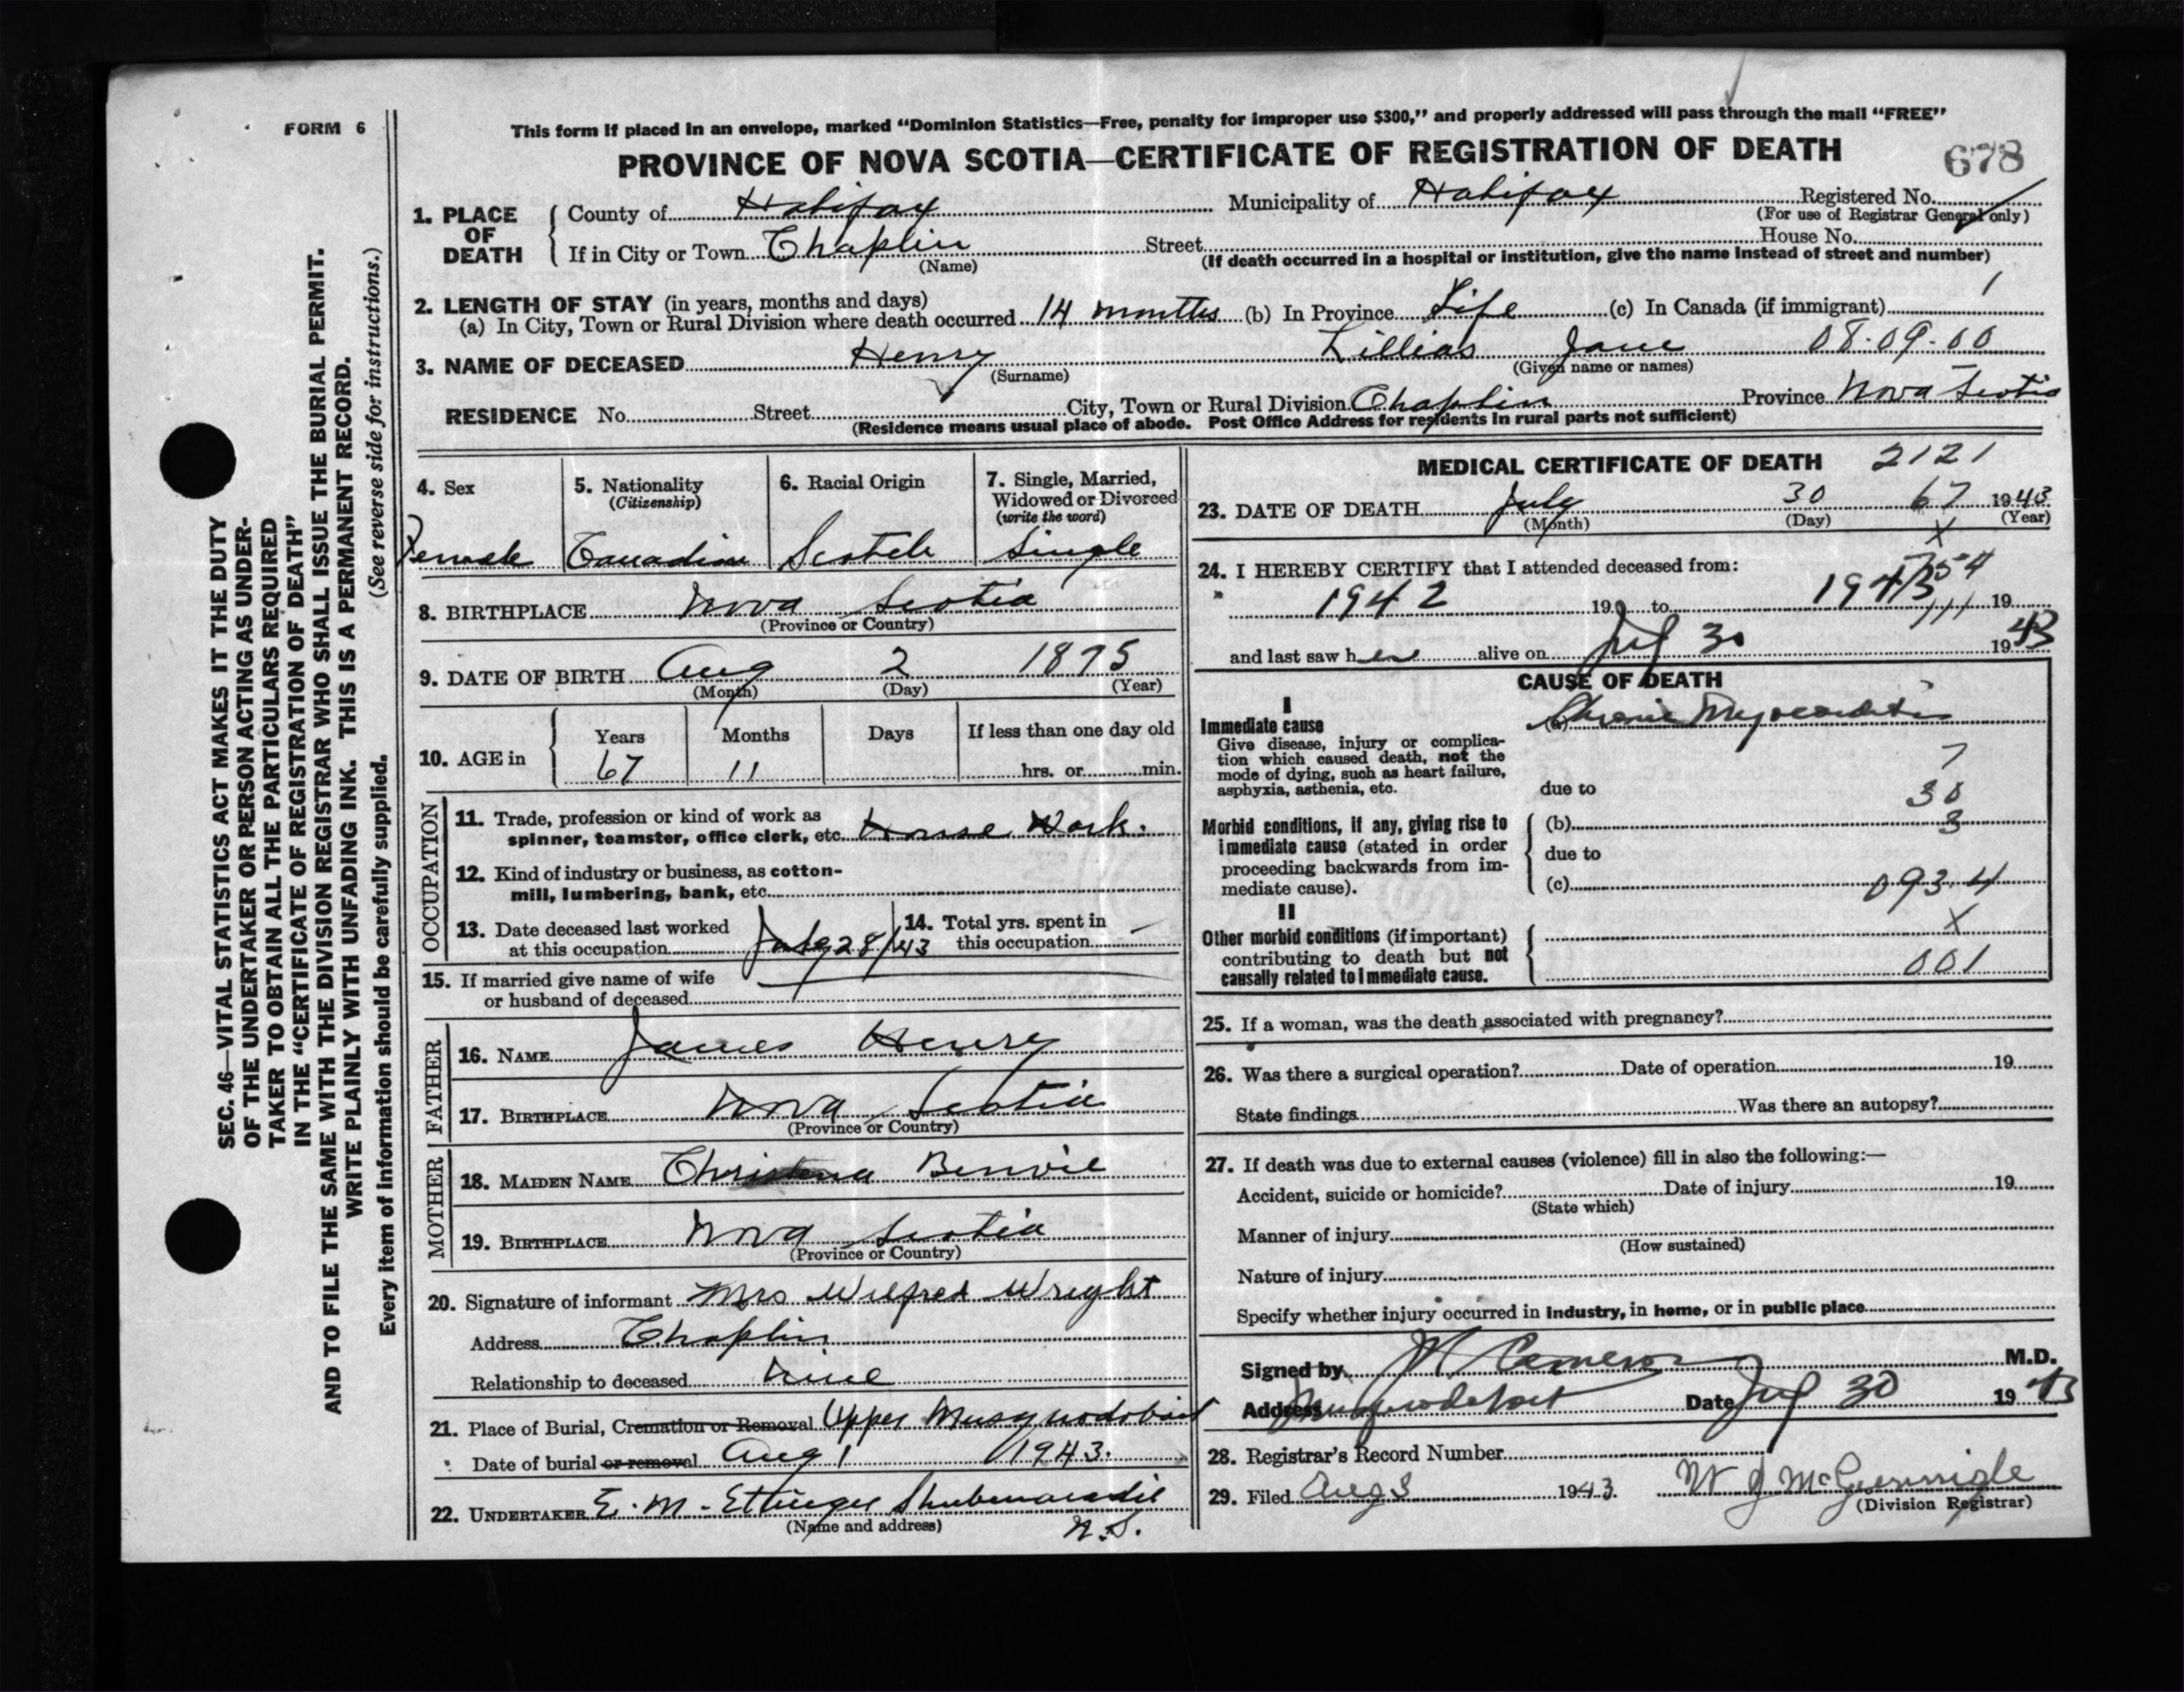 FORM 6
This form if placed in an envelope, marked "Dominion Statistics—Free, penalty for improper use $300," and properly addressed will pass through the mail "FREE"
PROVINCE OF NOVA SCOTIA—CERTIFICATE OF REGISTRATION OF DEATH
678
1. PLACE OF DEATH
County of Halifax Municipality of Halifax Registered No.
(For use of Registrar General only)
If in City or Town Chaplin Street House No.
(Name) (If death occurred in a hospital or institution, give the name instead of street and number)
2. LENGTH OF STAY (in years, months and days)
(a) In City, Town or Rural Division where death occurred 14 months (b) In Province Life (c) In Canada (if immigrant) 1
3. NAME OF DECEASED Henry Lillias Jane 08-09-00
(Surname) (Given name or names)
RESIDENCE No. Street City, Town or Rural Division Chaplin Province Nova Scotia
(Residence means usual place of abode. Post Office Address for residents in rural parts not sufficient)
4. Sex
Female
5. Nationality
(Citizenship)
Canadian
6. Racial Origin
Scotch
7. Single, Married,
Widowed or Divorced
(write the word)
Single
8. BIRTHPLACE Nova Scotia
(Province or Country)
9. DATE OF BIRTH Aug 2 1875
(Month) (Day) (Year)
10. AGE in
Years Months Days If less than one day old
67 11 hrs. or min.
OCCUPATION
11. Trade, profession or kind of work as
spinner, teamster, office clerk, etc. House Work.
12. Kind of industry or business, as cotton-
mill, lumbering, bank, etc.
13. Date deceased last worked
at this occupation July 28/43
14. Total yrs. spent in
this occupation —
15. If married give name of wife
or husband of deceased
FATHER
16. NAME James Henry
17. BIRTHPLACE Nova Scotia
(Province or Country)
MOTHER
18. MAIDEN NAME Christena Benvie
19. BIRTHPLACE Nova Scotia
(Province or Country)
20. Signature of informant Mrs Wilfred Wright
Address Chaplin
Relationship to deceased
21. Place of Burial, Cremation or Removal Upper Musquodoboit
Date of burial or removal Aug 1 1943.
22. UNDERTAKER E. M. Ettinger Shubenacadie
(Name and address) N.S.
MEDICAL CERTIFICATE OF DEATH 2121
23. DATE OF DEATH July 30 67 1943
(Month) (Day) (Year)
X
24. I HEREBY CERTIFY that I attended deceased from:
1942 19 to 1943 19
and last saw her alive on July 30 1943
CAUSE OF DEATH
I
Immediate cause
Give disease, injury or complica-
tion which caused death, not the
mode of dying, such as heart failure,
asphyxia, asthenia, etc.
(a) Chronic Myocarditis
7
due to
30
Morbid conditions, if any, giving rise to
immediate cause (stated in order
proceeding backwards from im-
mediate cause).
(b) 3
due to
(c) 093.4
II
Other morbid conditions (if important)
contributing to death but not
causally related to immediate cause.
X
001
25. If a woman, was the death associated with pregnancy?
26. Was there a surgical operation? Date of operation 19
State findings Was there an autopsy?
27. If death was due to external causes (violence) fill in also the following:—
Accident, suicide or homicide? Date of injury 19
(State which)
Manner of injury
(How sustained)
Nature of injury
Specify whether injury occurred in industry, in home, or in public place
Signed by Cameron M.D.
Address Musquodoboit Date July 30 1943
28. Registrar's Record Number
29. Filed Aug 3 1943. W J McGunnigle
(Division Registrar)
SEC. 46—VITAL STATISTICS ACT MAKES IT THE DUTY
OF THE UNDERTAKER OR PERSON ACTING AS UNDER-
TAKER TO OBTAIN ALL THE PARTICULARS REQUIRED
IN THE "CERTIFICATE OF REGISTRATION OF DEATH"
AND TO FILE THE SAME WITH THE DIVISION REGISTRAR WHO SHALL ISSUE THE BURIAL PERMIT.
WRITE PLAINLY WITH UNFADING INK. THIS IS A PERMANENT RECORD.
(See reverse side for instructions.)
Every item of information should be carefully supplied.